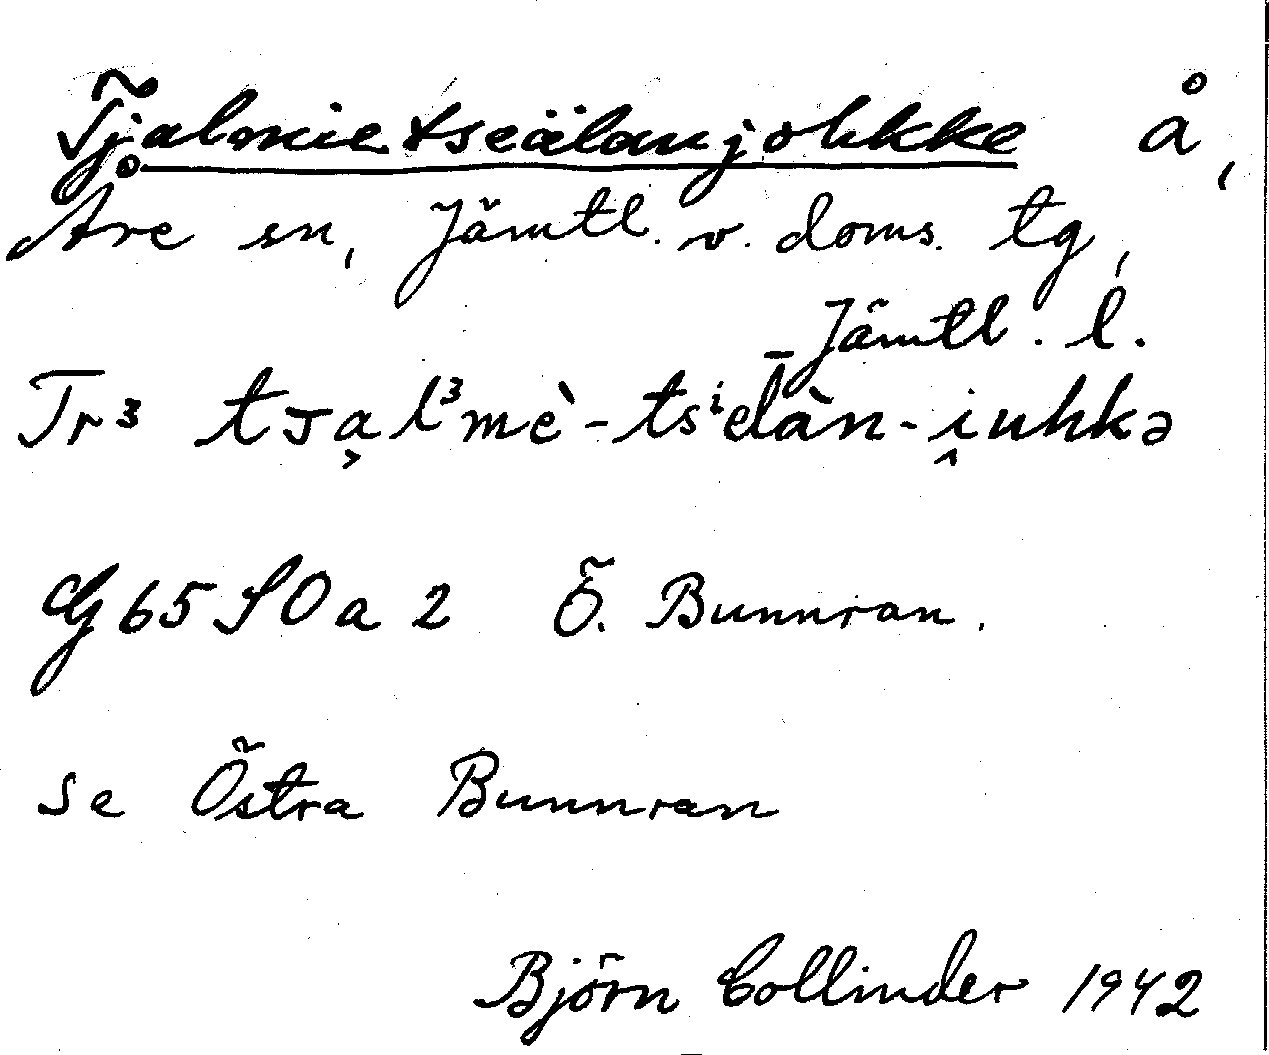 Tjalmietseälanjohkke å,
Åre sn, Jämtl. v. doms. tg,
Jämtl. l.
Tr³ tjal³mè-tsⁱēlàn-i̭uhkə
G65 SO a 2 Ö. Bunnran.
se Östra Bunnran
Björn Collinder 1942